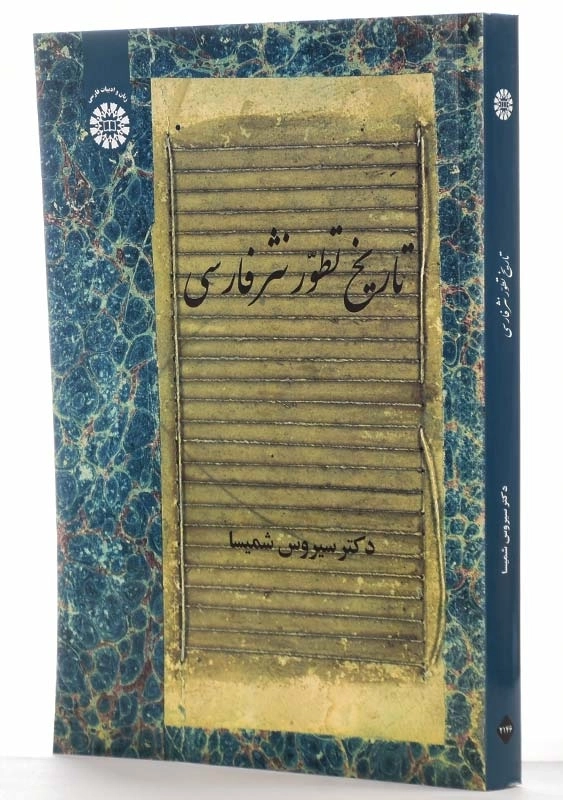 زبان و ادبیات فارسی
تاریخ تطوّر نثر فارسی
دکتر سیروس شمیسا
تاریخ تطوّر نثر فارسی
دکتر سیروس شمیسا
۲۱۲۶